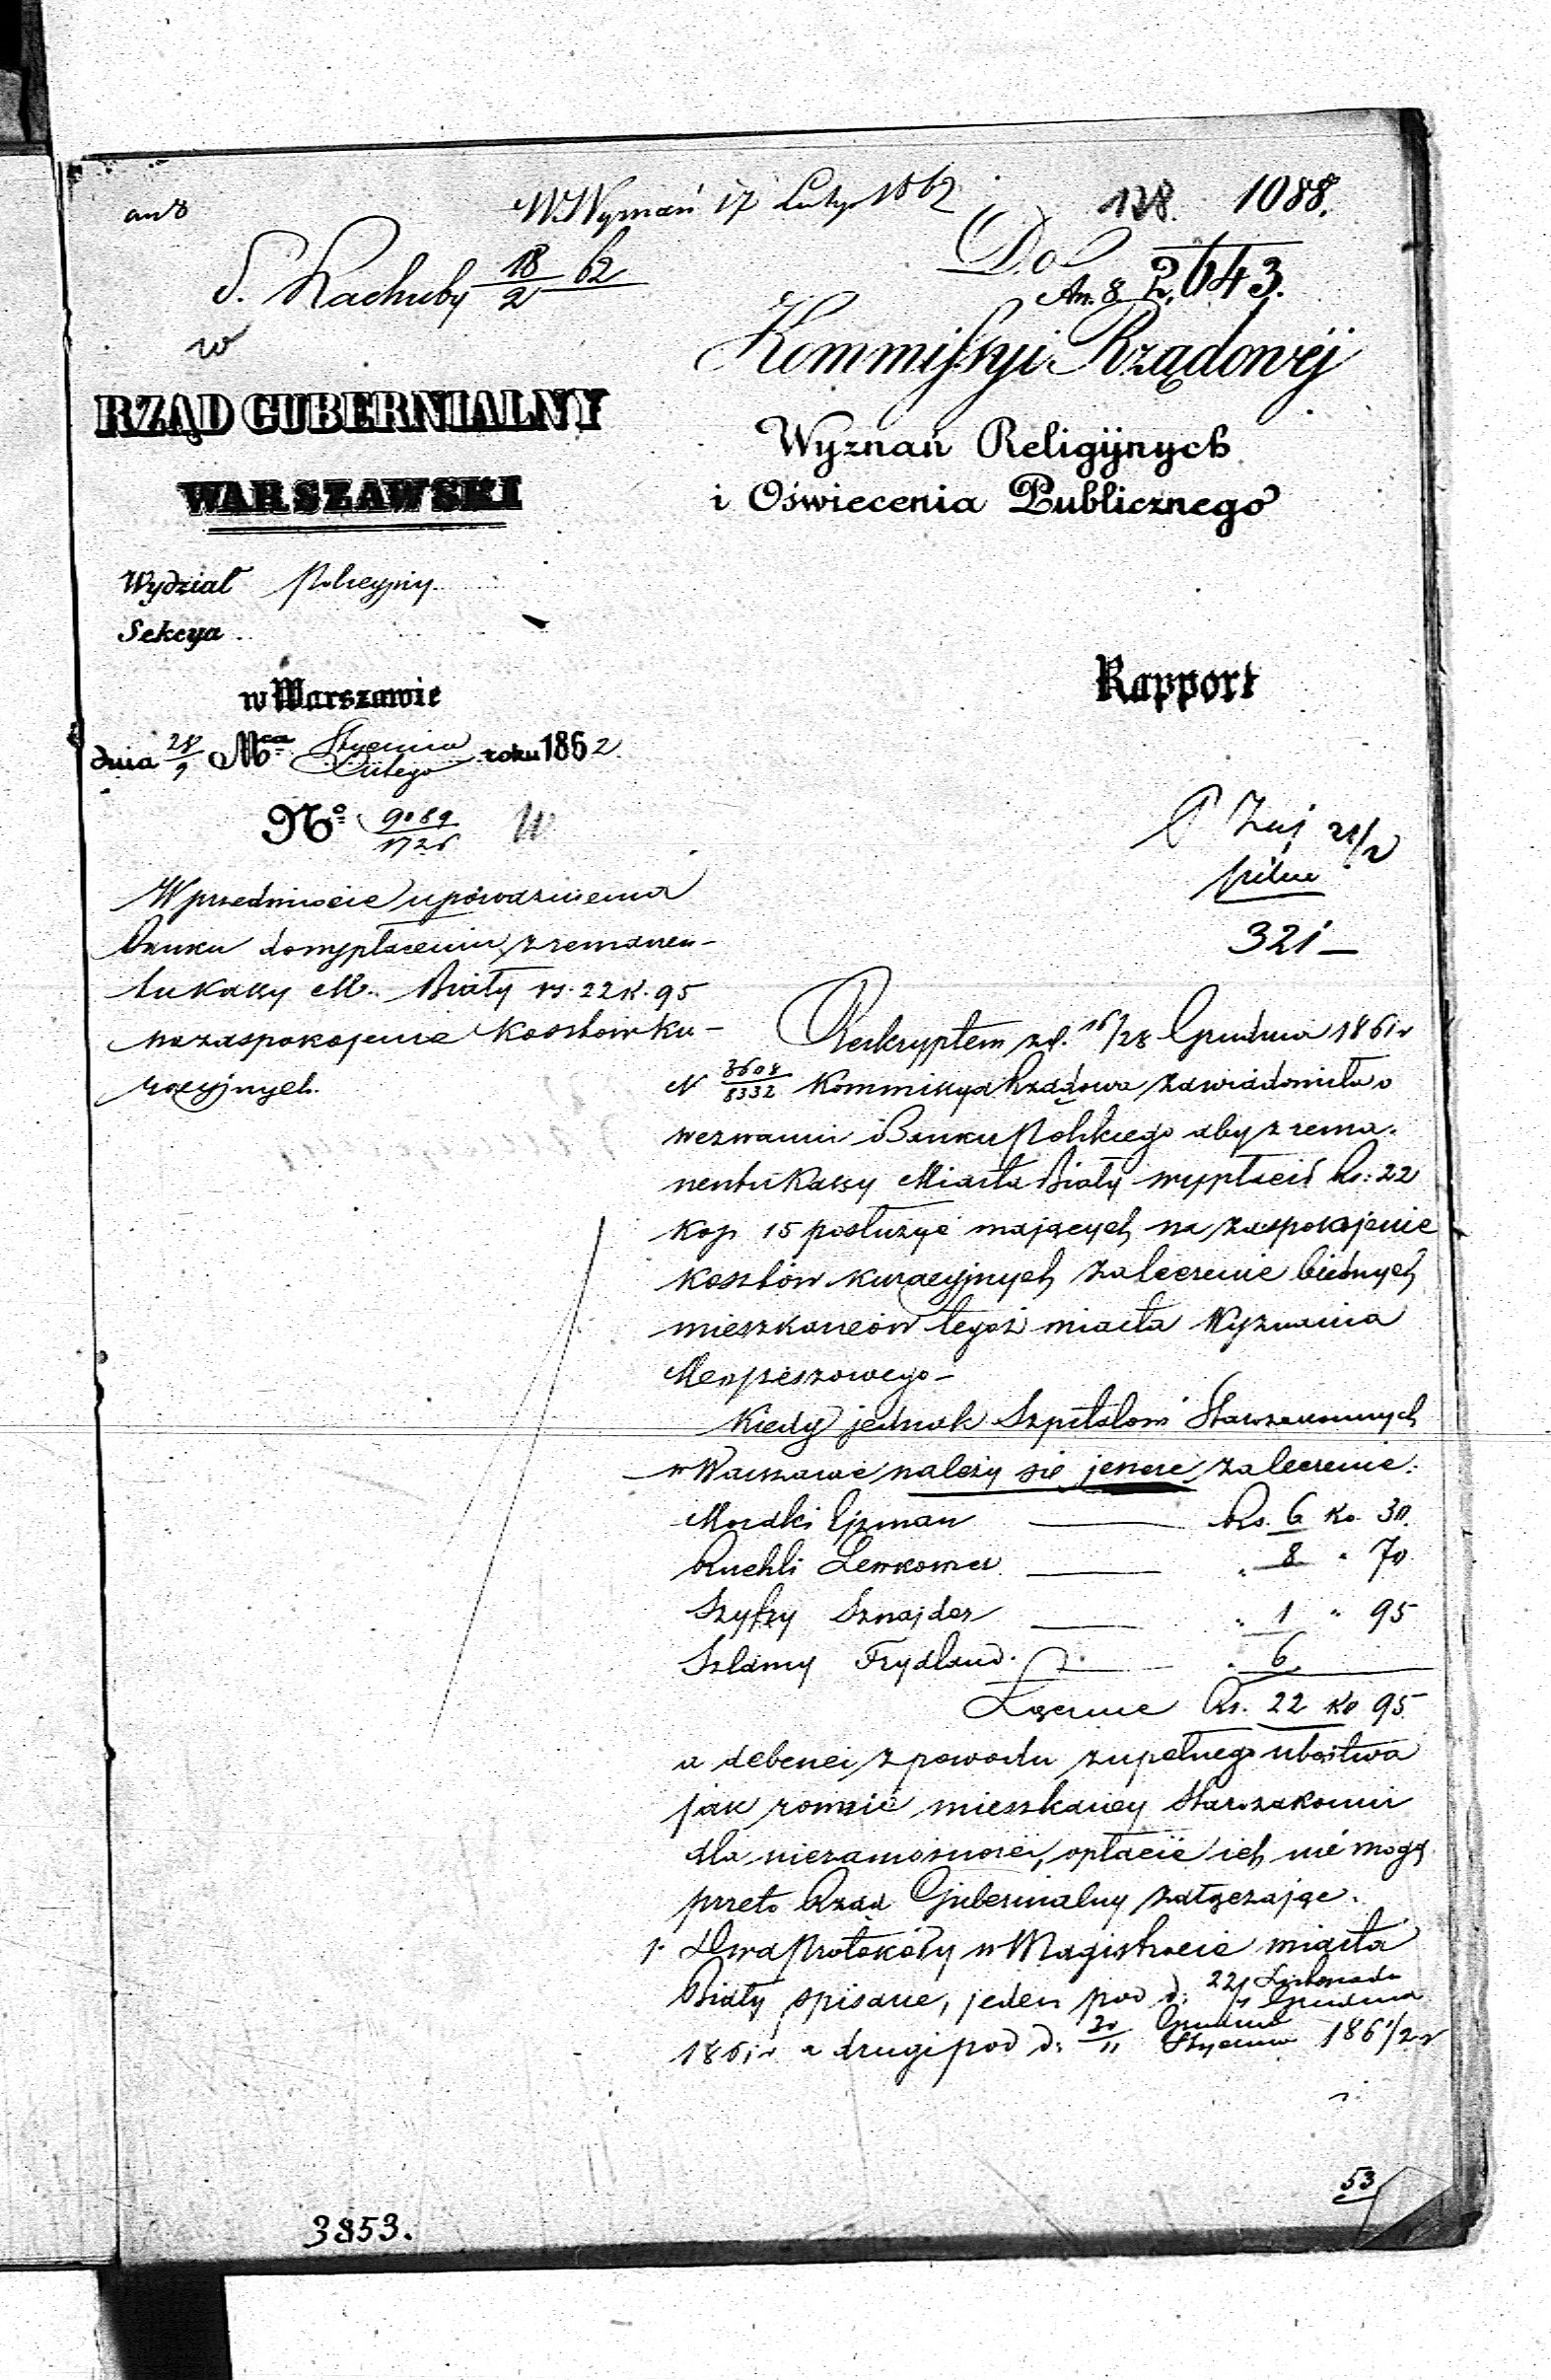 W Wyznań 17 Luty 1862
128. 1088.
an 8
S. Rachuby 18/2 62
Do
An. 8 2,643.
w
RZĄD GUBERNIALNY
WARSZAWSKI
Kommissyi Rządowéj
Wyznań Religijnych
i Oświecenia Publicznego
Wydział Policyjny
Sekcya
w Warszawie
dnia 28/9 Mca Stycznia/Lutego roku 1862
No 9089/1726 W
Rapport
21/2
pilne
321 —
W przedmiocie upoważnienia
Banku do wypłacenia z remanen-
tu Kassy M. Biały rs. 22 k. 95
na zaspokojenie kosztów ku-
racyjnych.
Reskryptem z d. 16/28 Grudnia 1861 r
N 3608/8332 Kommissya Rządowa zawiadomiła o
wezwaniu Banku Polskiego aby z rema-
nentu Kassy Miasta Biały wypłacił Rs: 22
kop 15 posłużyć mających na zaspokojenie
kosztów kuracyjnych za leczenie biednych
mieszkańców tegoż miasta Wyznania
Mojżeszowego —
Kiedy jednak Szpitalowi Starozakonnych
w Warszawie należy się jeszcze za leczenie:
Mordki Ejzman Rs. 6 ko 30.
Ruchli Lewkowicz " 8 " 70
Szyfry Sznajder " 1 " 95
Szlamy Frydland " 6
Łącznie Rs. 22 ko 95
a debenci z powodu zupełnego ubóstwa
jak rownie mieszkańcy Starozakonni
dla niezamożności, opłacić ich nie mogą
przeto Rząd Gubernialny załączając.
1. Dwa Protokóły w Magistracie miasta
Biały spisane, jeden pod d: 22/4 Listopada/Grudnia
1861 r a drugi pod d: 30/11 Grudnia/Stycznia 1861/2 r
53
3853.